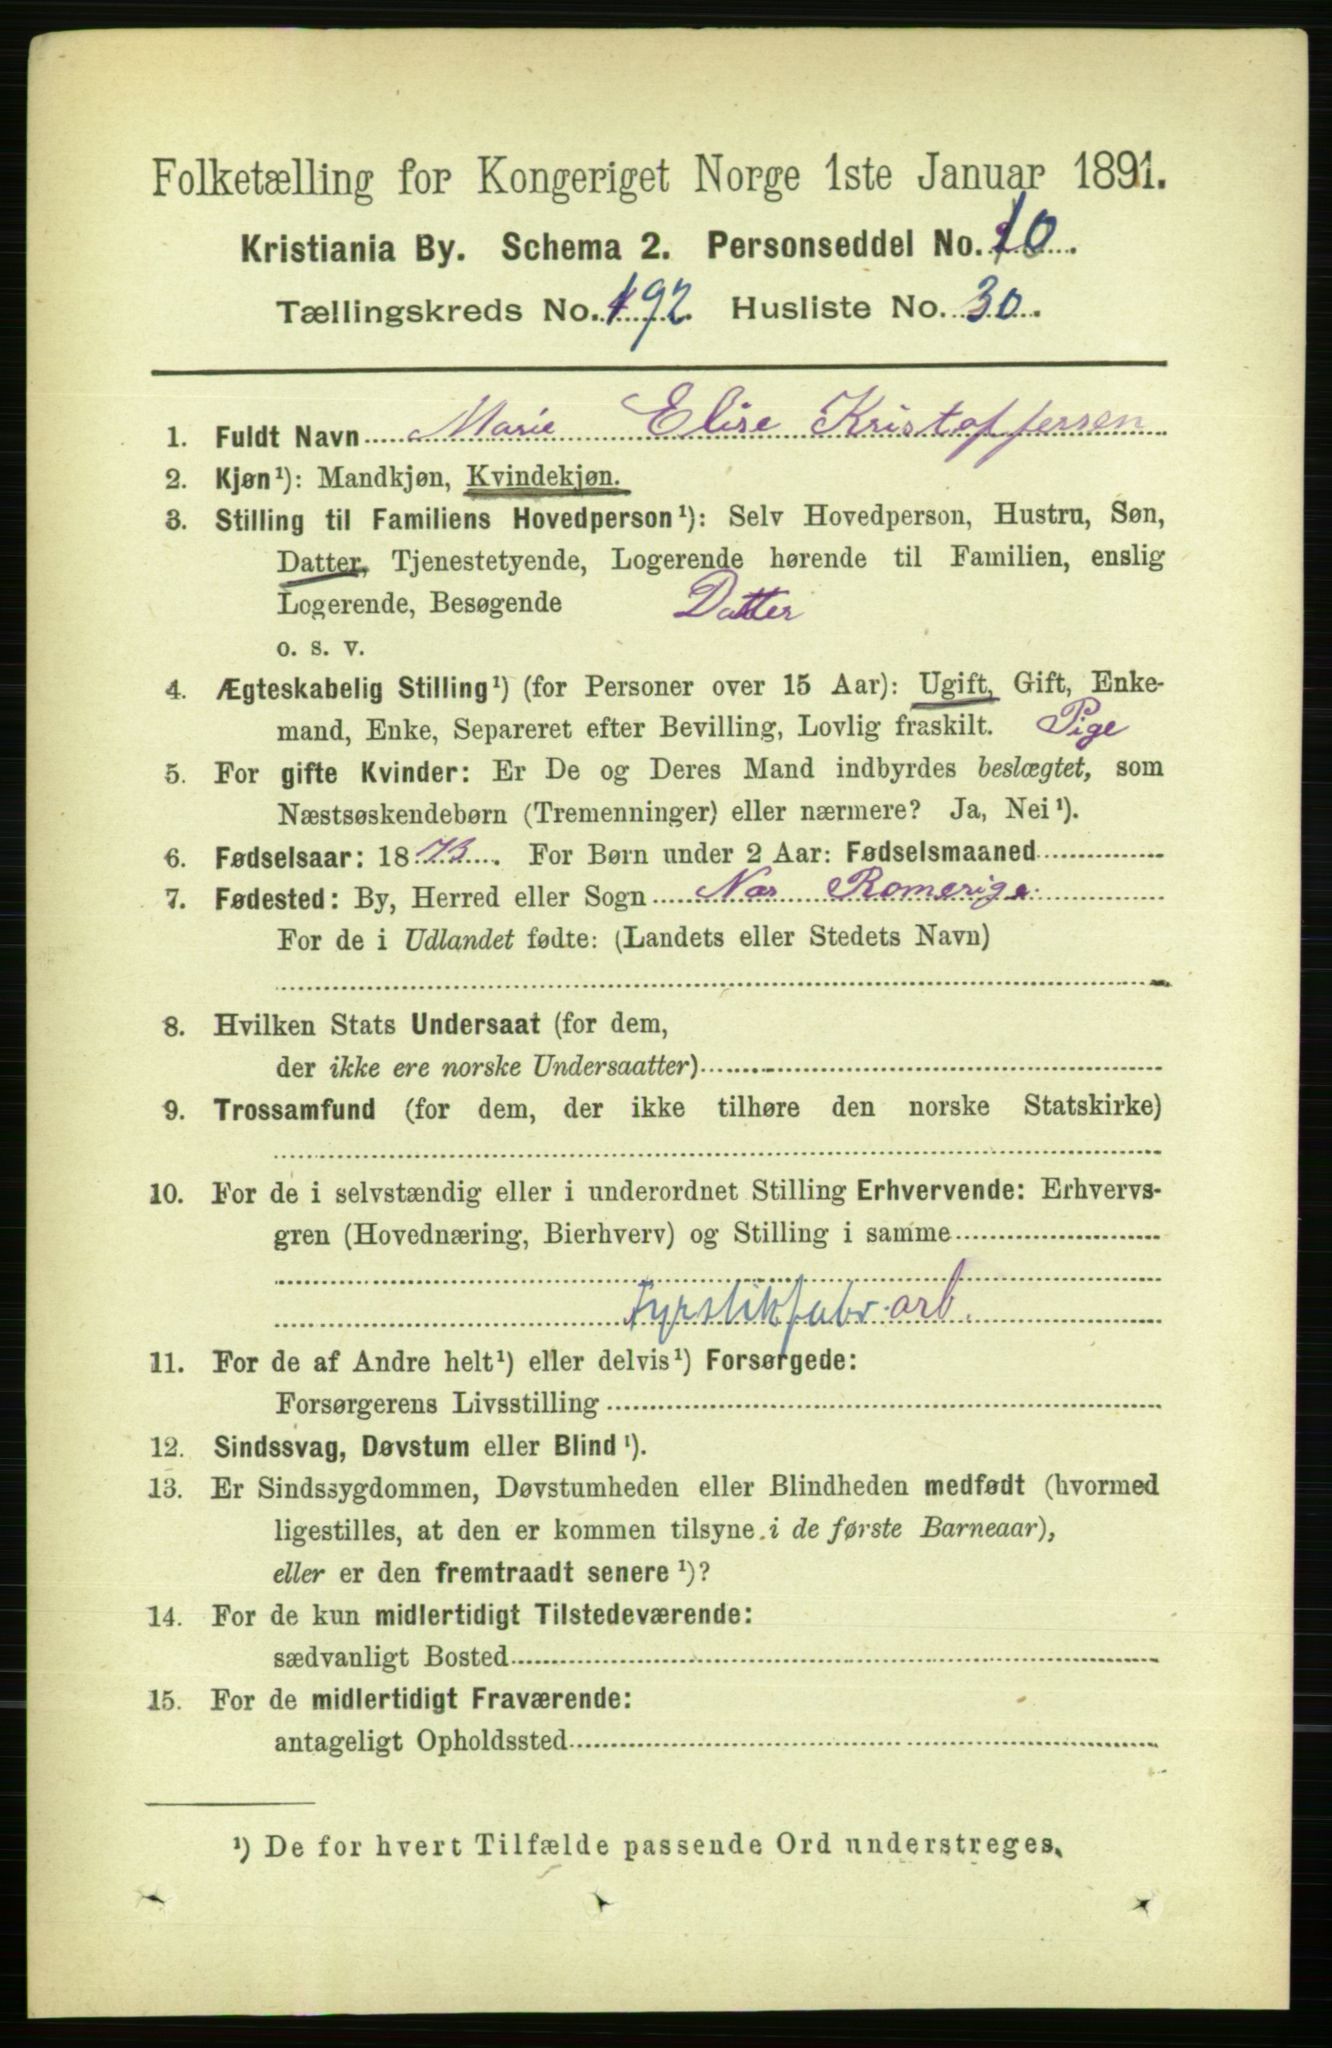 Folketælling for Kongeriget Norge 1ste Januar 1891.
Kristiania By. Schema 2. Personseddel No. 10.
Tællingskreds No. 192. Husliste No. 30.
1. Fuldt Navn Marie Elise Kristoffersen
2. Kjøn¹): Mandkjøn, Kvindekjøn.
3. Stilling til Familiens Hovedperson¹): Selv Hovedperson, Hustru, Søn,
Datter, Tjenestetyende, Logerende hørende til Familien, enslig
Logerende, Besøgende Datter
o. s. v.
4. Ægteskabelig Stilling¹) (for Personer over 15 Aar): Ugift, Gift, Enke-
mand, Enke, Separeret efter Bevilling, Lovlig fraskilt. Pige
5. For gifte Kvinder: Er De og Deres Mand indbyrdes beslægtet, som
Næstsøskendebørn (Tremenninger) eller nærmere? Ja, Nei¹).
6. Fødselsaar: 1873. For Børn under 2 Aar: Fødselsmaaned
7. Fødested: By, Herred eller Sogn Nes Romerige.
For de i Udlandet fødte: (Landets eller Stedets Navn)
8. Hvilken Stats Undersaat (for dem,
der ikke ere norske Undersaatter)
9. Trossamfund (for dem, der ikke tilhøre den norske Statskirke)
10. For de i selvstændig eller i underordnet Stilling Erhvervende: Erhvervs-
gren (Hovednæring, Bierhverv) og Stilling i samme
Fyrstikfabr. arb.
11. For de af Andre helt¹) eller delvis¹) Forsørgede:
Forsørgerens Livsstilling
12. Sindssvag, Døvstum eller Blind¹).
13. Er Sindssygdommen, Døvstumheden eller Blindheden medfødt (hvormed
ligestilles, at den er kommen tilsyne i de første Barneaar),
eller er den fremtraadt senere¹)?
14. For de kun midlertidigt Tilstedeværende:
sædvanligt Bosted
15. For de midlertidigt Fraværende:
antageligt Opholdssted
¹) De for hvert Tilfælde passende Ord understreges.